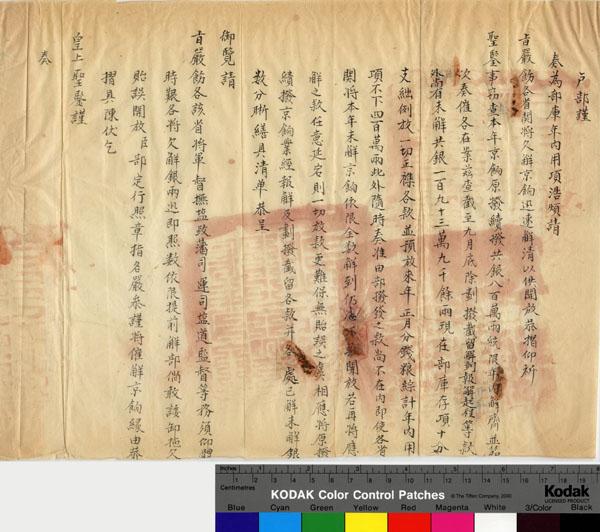 户部謹
奏為部庫年內用項浩煩請
旨嚴飭各省關將欠解京餉迅速解清以供開放恭摺仰祈
聖鑒事竊查本年京餉原撥續撥共銀八百萬兩統限年內解齊並節
次奏催各在案茲查截至九月底除劃撥截留解到報解起程等款
外尚有未解共銀一百九十三萬九千餘兩現在部庫存項十分
支絀例放一切正雜各款並預放來年正月分餉銀綜計年內用
項不下四百萬兩此外隨時奏准由部撥發之款尚不在內即使各省
關將本年未解京餉依限全數解到仍 開放若再將應
解之款任意延宕則一切放款更難保無貽誤之虞相應將原撥
續撥京餉業經報解及劃撥截留各款并各處已解未解銀
數分晰繕具清單恭呈
御覽請
旨嚴飭各該省將軍督撫鹽政藩司運司鹽道監督等務須仰體
時艱各將欠解銀兩迅即照數依限提前解部倘敢諉卸拖欠
貽誤開放臣部定行照章指名嚴參謹將催解京餉緣由恭
摺具陳伏乞
皇上聖鑒謹
奏
Inches
Centimetres
KODAK Color Control Patches
© The Tiffen Company, 2000
Kodak
LICENSED PRODUCT
Blue Cyan Green Yellow Red Magenta White 3/Color Black